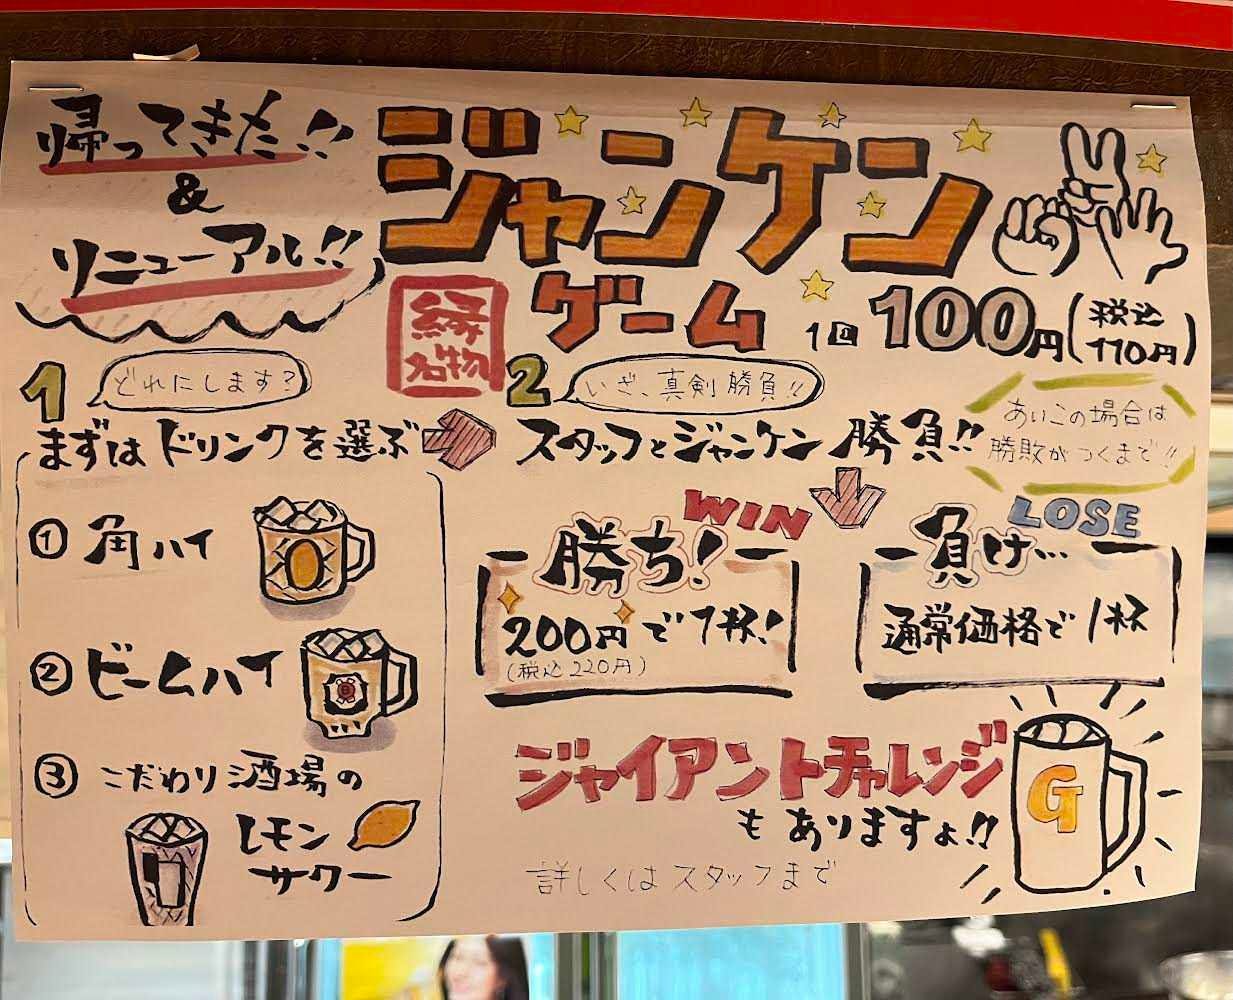 帰ってきた!!
&
リニューアル!!
ジャンケン
ゲーム
縁
名物
1回 100円 (税込110円)
1 どれにします?
まずはドリンクを選ぶ
① 角ハイ
② ビームハイ
③ こだわり酒場の
レモン
サワー
2 いざ、真剣勝負!!
スタッフとジャンケン勝負!!
あいこの場合は
勝敗がつくまで!!
WIN
勝ち!
200円で1杯!
(税込220円)
LOSE
負け…
通常価格で1杯
ジャイアントチャレンジ
もありますよ!!
詳しくはスタッフまで
G